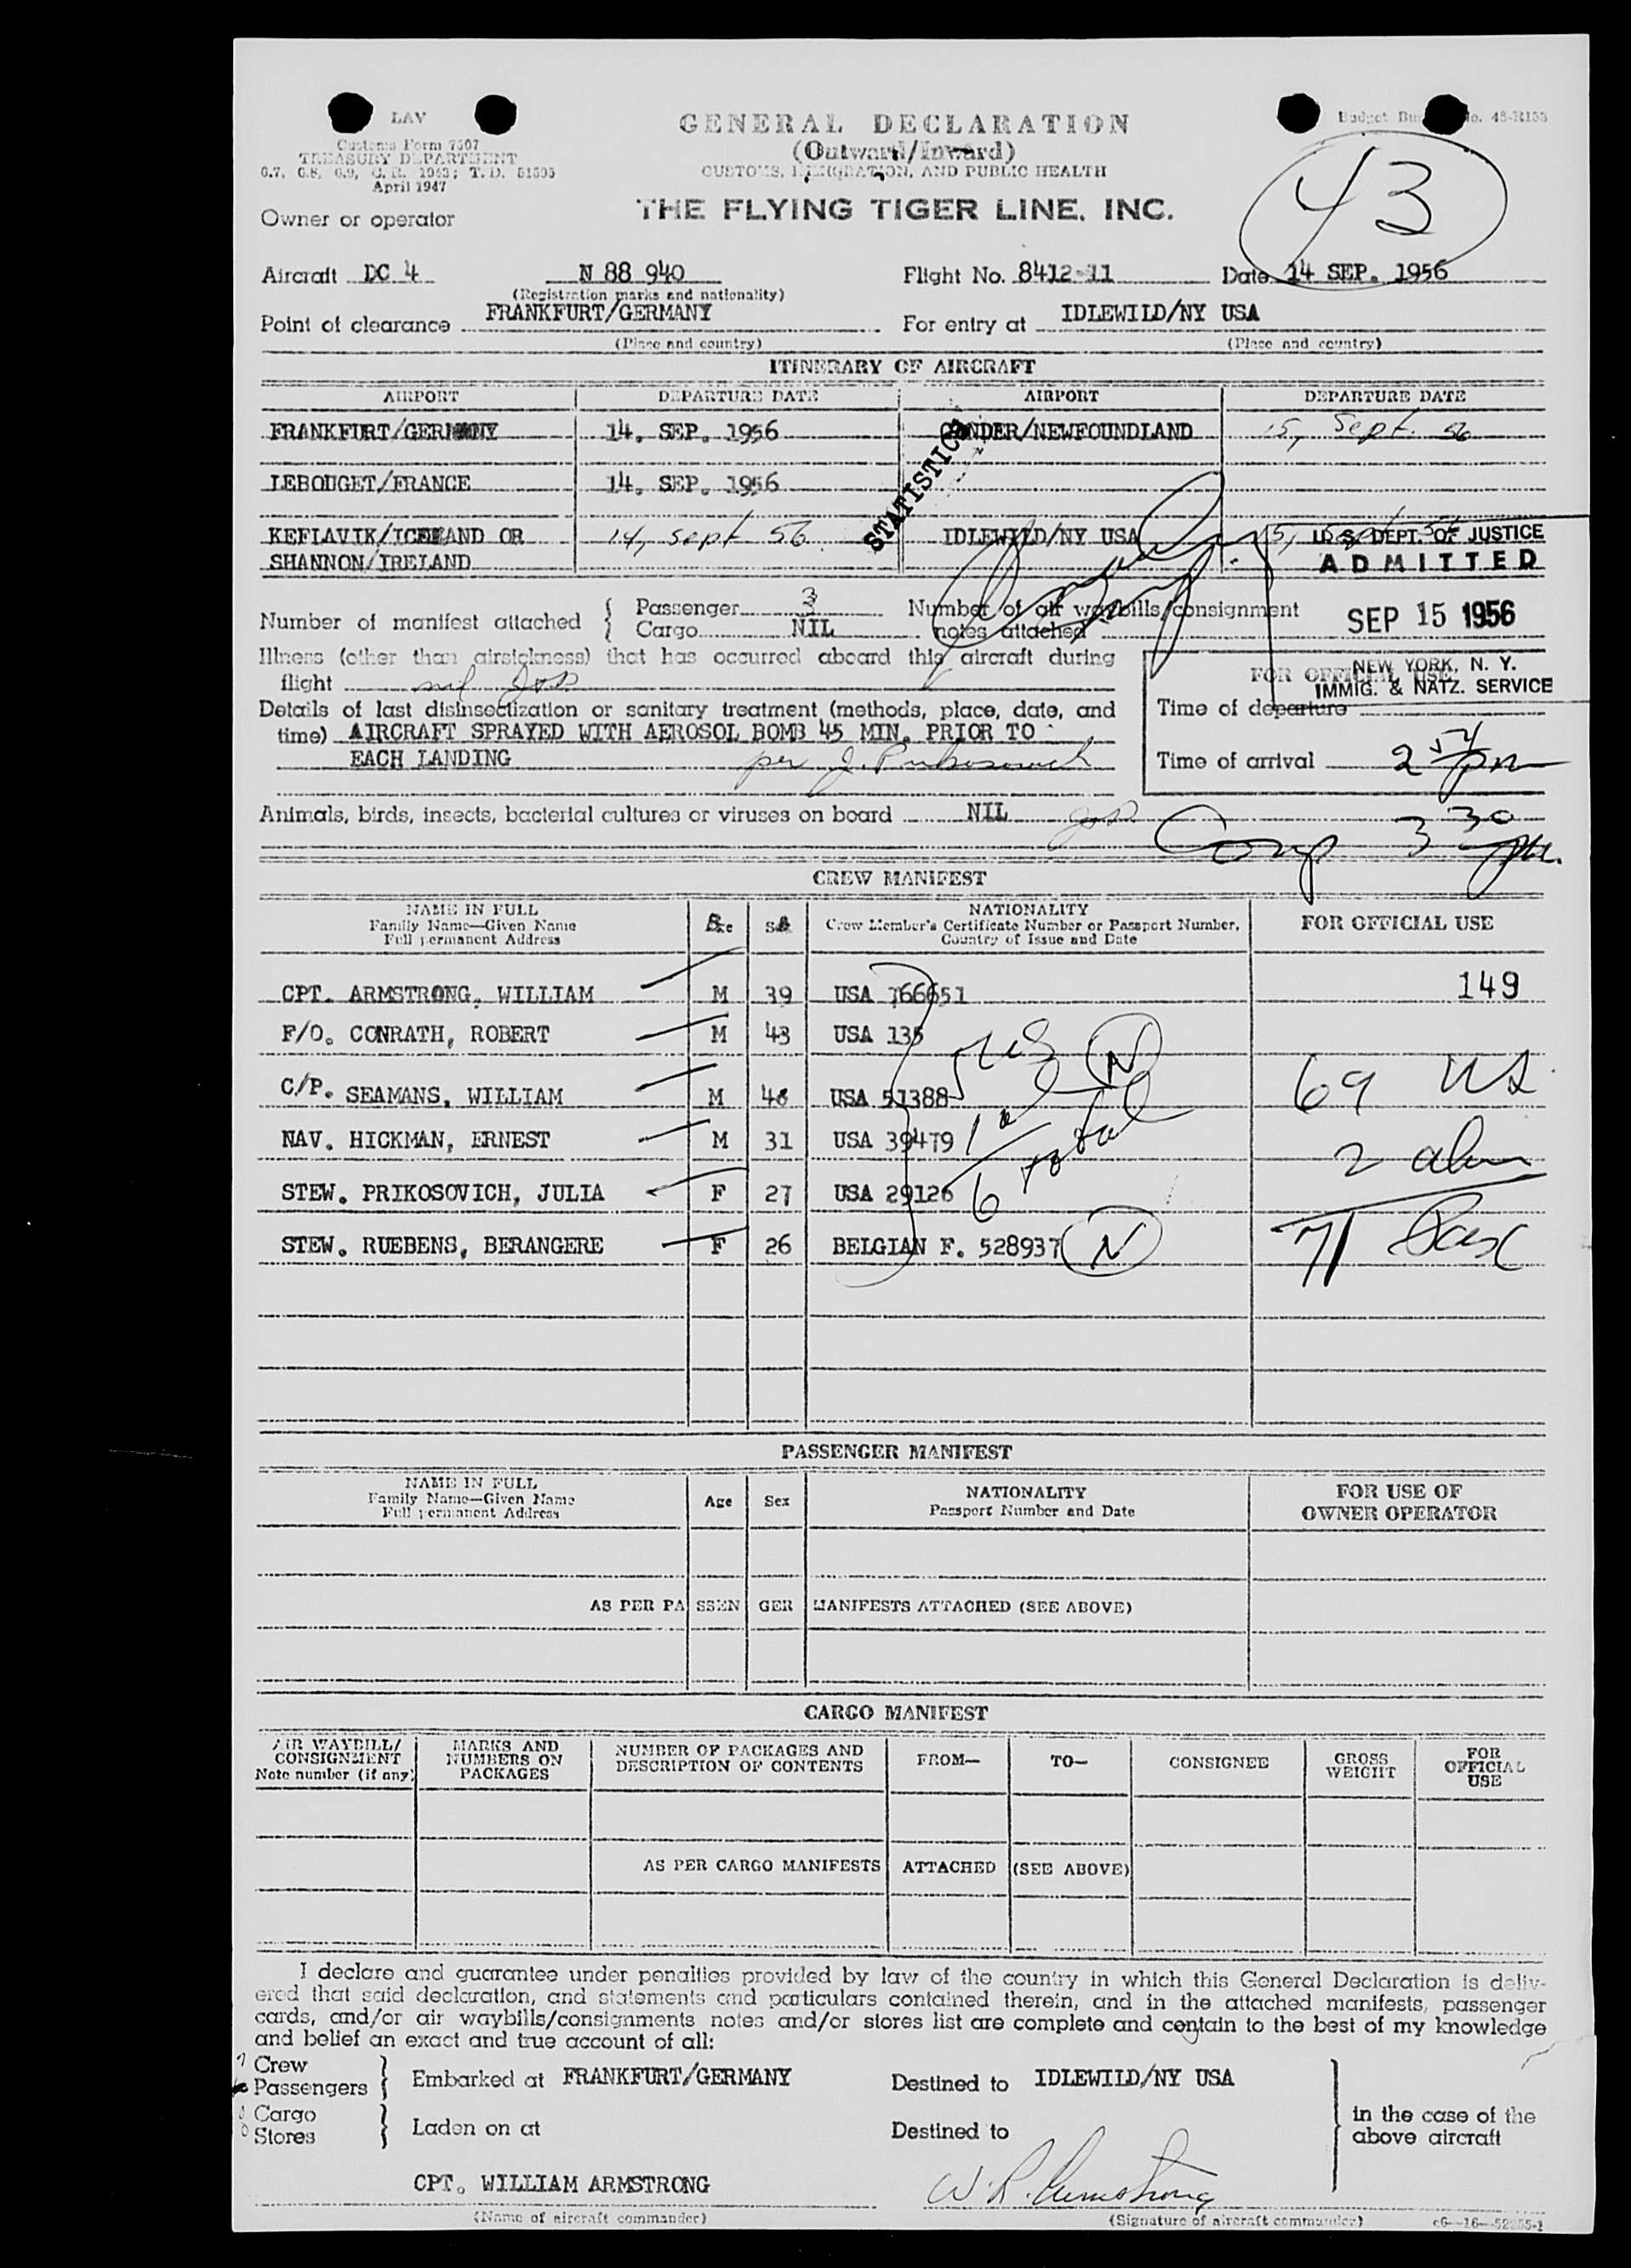 LAV
Customs Form 7507
TREASURY DEPARTMENT
6.7, 6.8, 6.9, C.R. 1943; T.D. 51505
April 1947
GENERAL DECLARATION
(Outward/Inward)
CUSTOMS, IMMIGRATION, AND PUBLIC HEALTH
Budget No. 48-R153
43
Owner or operator THE FLYING TIGER LINE, INC.
Aircraft DC 4 N 88 940 Flight No. 8412-11 Date 14 SEP. 1956
(Registration marks and nationality)
Point of clearance FRANKFURT/GERMANY For entry at IDLEWILD/NY USA
(Place and country) (Place and country)
ITINERARY OF AIRCRAFT
AIRPORT DEPARTURE DATE AIRPORT DEPARTURE DATE
FRANKFURT/GERMANY 14. SEP. 1956 GANDER/NEWFOUNDLAND 15, Sept. 56
STATISTICS
LEBOUGET/FRANCE 14. SEP. 1956
KEFLAVIK/ICELAND OR 14, Sept 56 IDLEWILD/NY USA 15,
SHANNON/IRELAND
U.S. DEPT. OF JUSTICE
ADMITTED
SEP 15 1956
NEW YORK, N. Y.
IMMIG. & NATZ. SERVICE
Number of manifest attached { Passenger 3 Number of air waybills/consignment
{ Cargo NIL notes attached
Illness (other than airsickness) that has occurred aboard this aircraft during
flight nil
FOR OFFICIAL USE
Details of last disinsectization or sanitary treatment (methods, place, date, and
time) AIRCRAFT SPRAYED WITH AEROSOL BOMB 45 MIN. PRIOR TO
EACH LANDING per J. Prikosovich
Time of departure
Time of arrival 2 54 pm
Animals, birds, insects, bacterial cultures or viruses on board NIL
Comp 3 30 pm.
CREW MANIFEST
NAME IN FULL
Family Name—Given Name
Full permanent Address
NATIONALITY
Crew Member's Certificate Number or Passport Number,
Country of Issue and Date
FOR OFFICIAL USE
CPT. ARMSTRONG, WILLIAM M 39 USA 766651 149
F/O. CONRATH, ROBERT M 43 USA 135
5 US N
C/P. SEAMANS, WILLIAM M 48 USA 51388 69 US
NAV. HICKMAN, ERNEST M 31 USA 39479
6 total
2 alien
STEW. PRIKOSOVICH, JULIA F 27 USA 29126
STEW. RUEBENS, BERANGERE F 26 BELGIAN F. 528937 N
71 Pax
PASSENGER MANIFEST
NAME IN FULL
Family Name—Given Name
Full permanent Address
Age Sex
NATIONALITY
Passport Number and Date
FOR USE OF
OWNER OPERATOR
AS PER PASSENGER MANIFESTS ATTACHED (SEE ABOVE)
CARGO MANIFEST
AIR WAYBILL/
CONSIGNMENT
Note number (if any)
MARKS AND
NUMBERS ON
PACKAGES
NUMBER OF PACKAGES AND
DESCRIPTION OF CONTENTS
FROM—
TO—
CONSIGNEE
GROSS
WEIGHT
FOR
OFFICIAL
USE
AS PER CARGO MANIFESTS ATTACHED (SEE ABOVE)
I declare and guarantee under penalties provided by law of the country in which this General Declaration is deliv-
ered that said declaration, and statements and particulars contained therein, and in the attached manifests, passenger
cards, and/or air waybills/consignments notes and/or stores list are complete and contain to the best of my knowledge
and belief an exact and true account of all:
Crew
Passengers } Embarked at FRANKFURT/GERMANY Destined to IDLEWILD/NY USA
Cargo
Stores } Laden on at Destined to
in the case of the
above aircraft
CPT. WILLIAM ARMSTRONG W. R. Armstrong
(Name of aircraft commander) (Signature of aircraft commander)